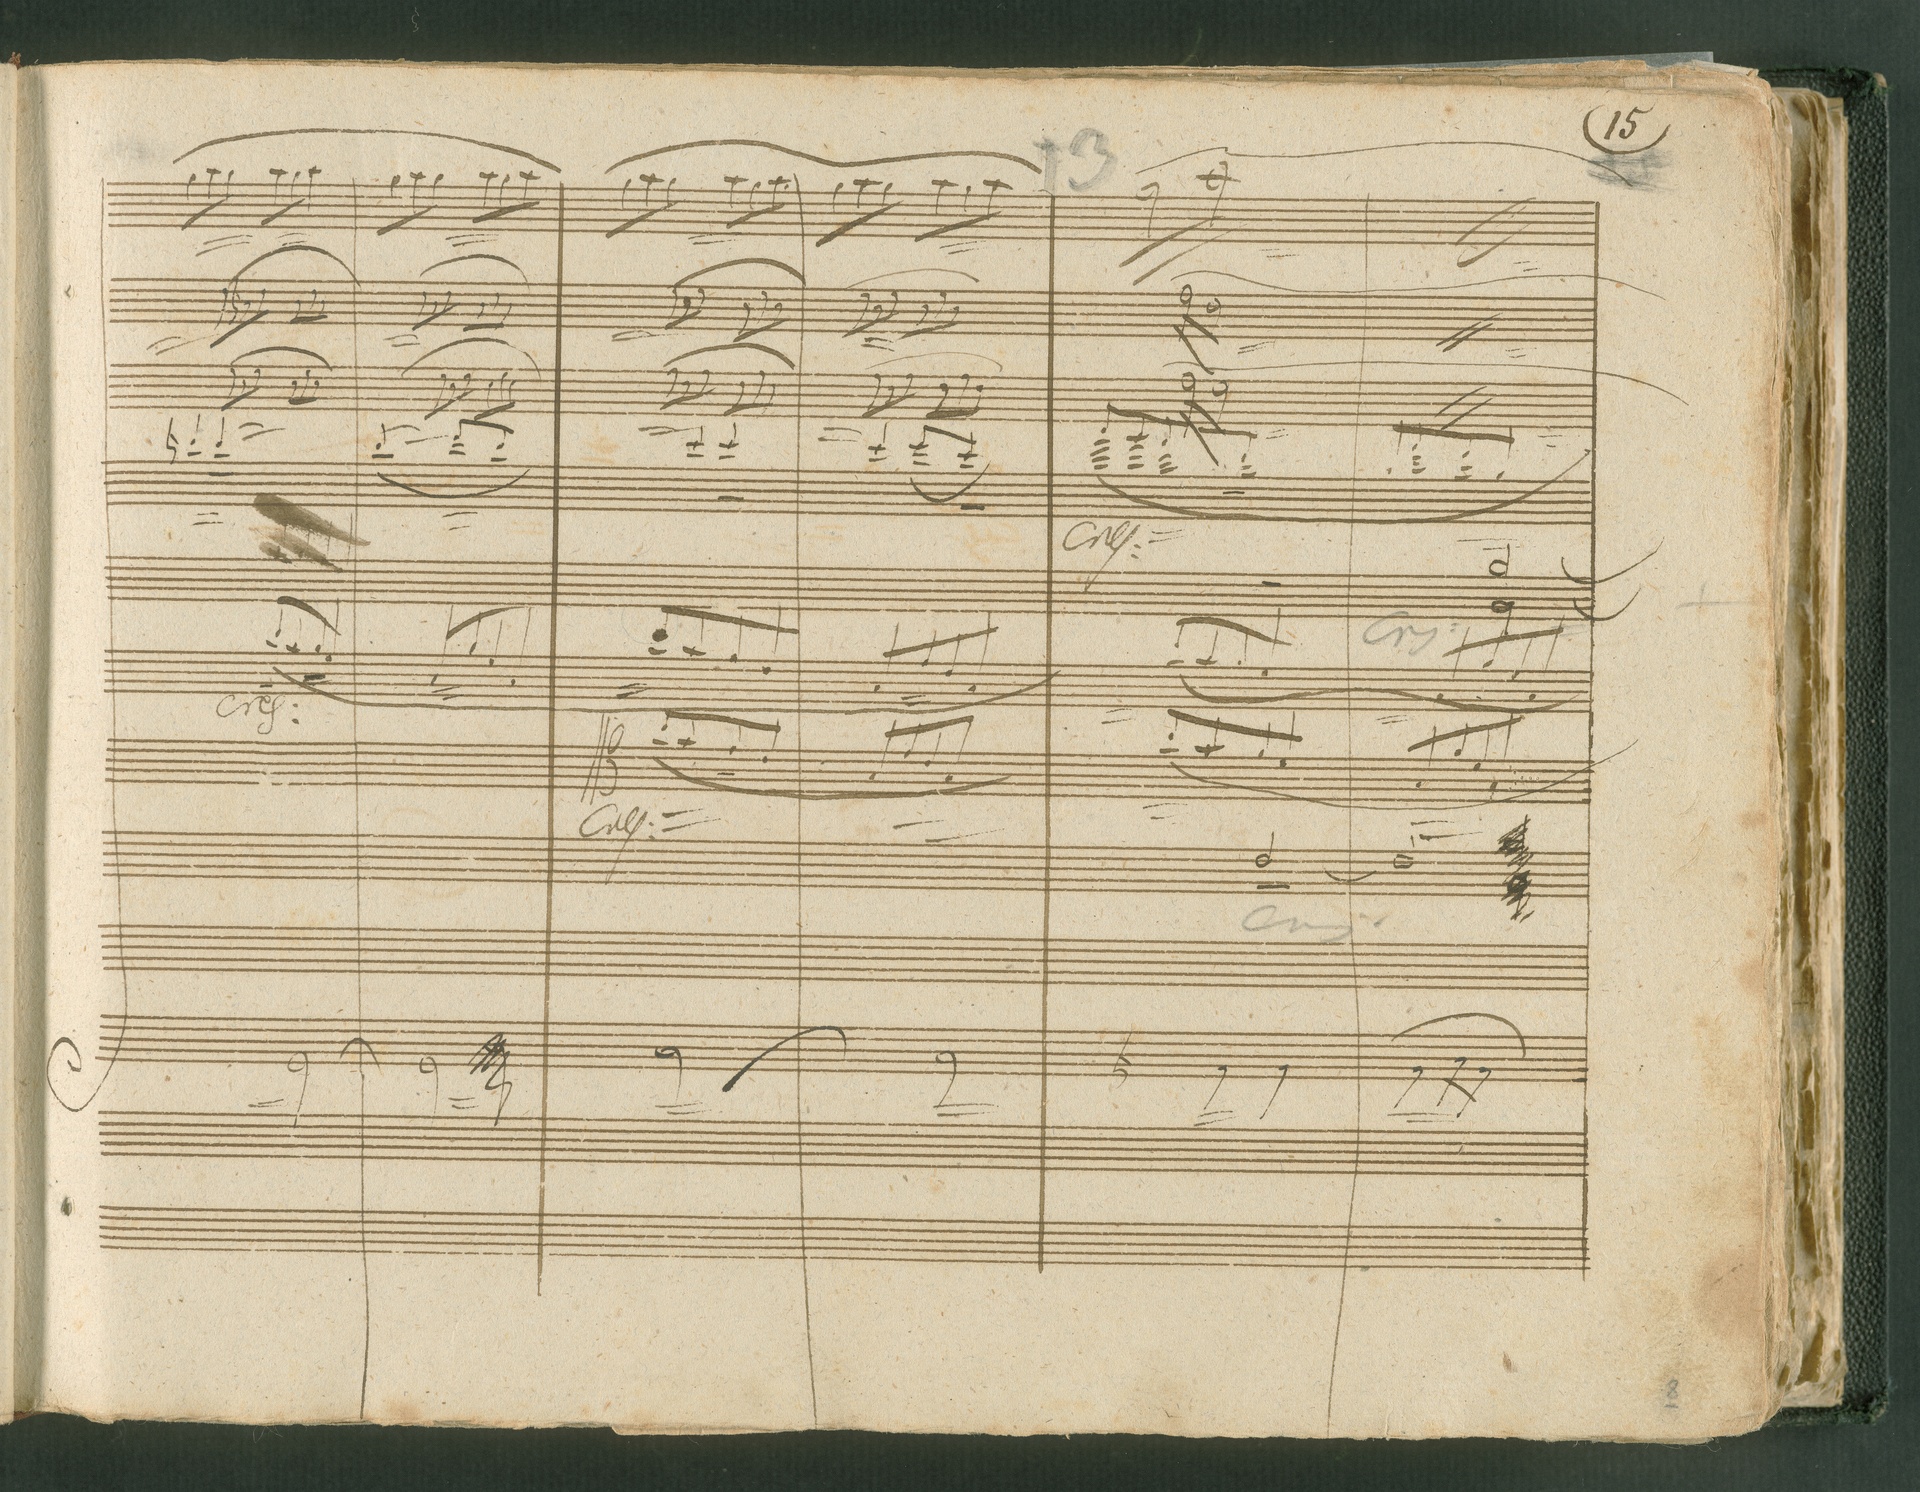 15
13
cres:
cres:
cres:
cres:
cres:
8